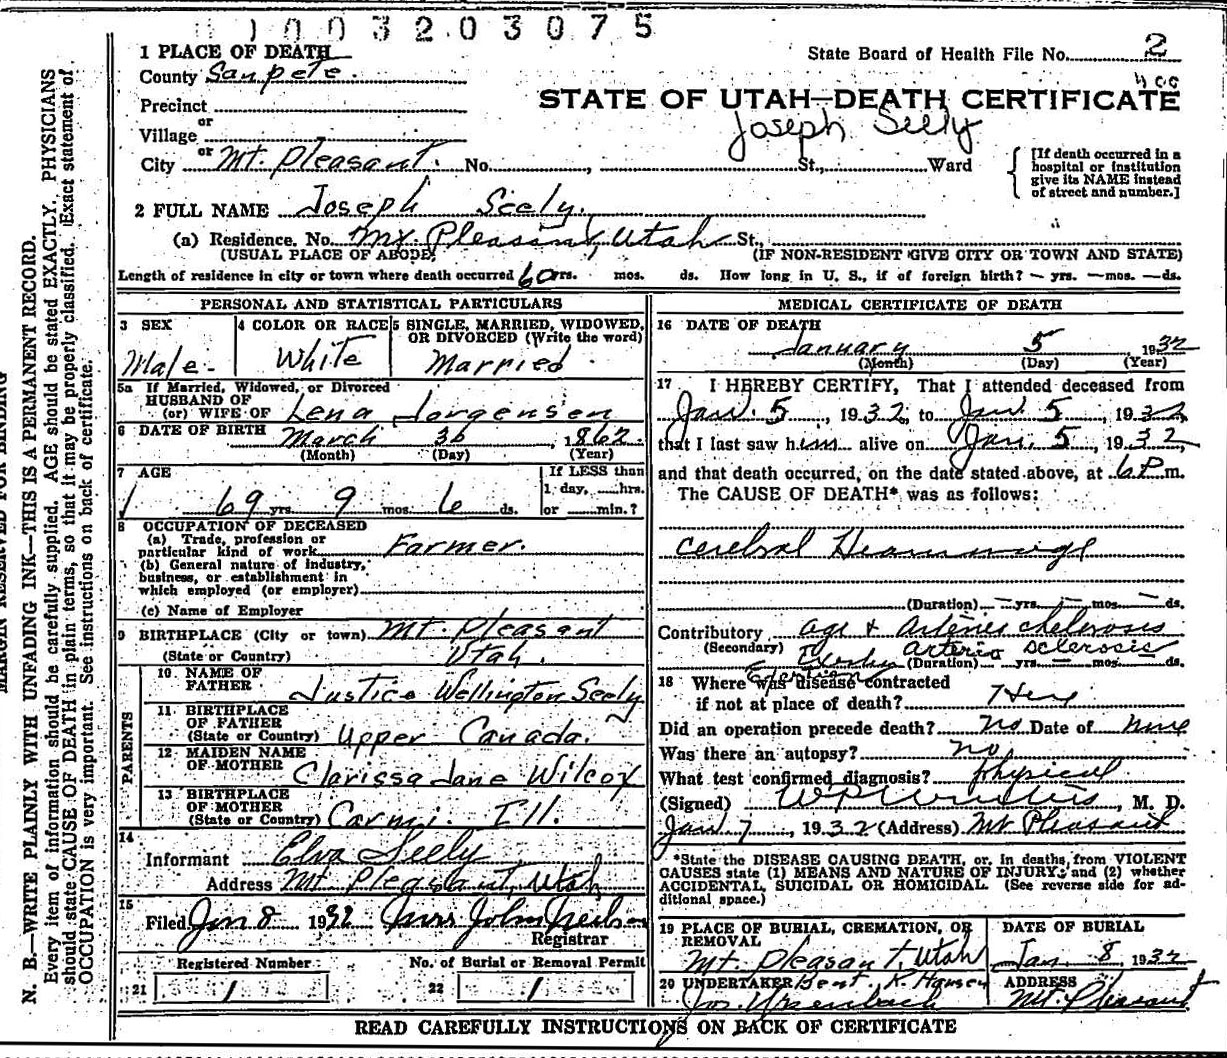 1003203075
1 PLACE OF DEATH
State Board of Health File No. 2
County Sanpete.
400
Precinct
STATE OF UTAH—DEATH CERTIFICATE
or
Joseph Seely
Village
or
City Mt. Pleasant. No. , St., Ward
[If death occurred in a
hospital or institution
give its NAME instead
of street and number.]
2 FULL NAME Joseph Seely.
(a) Residence. No. Mt. Pleasant, Utah St.,
(USUAL PLACE OF ABODE) (IF NON-RESIDENT GIVE CITY OR TOWN AND STATE)
Length of residence in city or town where death occurred 60 yrs. mos. ds. How long in U. S., if of foreign birth? – yrs. – mos. – ds.
PERSONAL AND STATISTICAL PARTICULARS
3 SEX
Male.
4 COLOR OR RACE
White
5 SINGLE, MARRIED, WIDOWED,
OR DIVORCED (Write the word)
Married.
5a If Married, Widowed, or Divorced
HUSBAND OF
(or) WIFE OF Lena Jorgensen
6 DATE OF BIRTH March 30, 1862.
(Month) (Day) (Year)
7 AGE
If LESS than
1 day, hrs.
69 yrs. 9 mos. 6 ds. or min.?
8 OCCUPATION OF DECEASED
(a) Trade, profession or
particular kind of work Farmer.
(b) General nature of industry,
business, or establishment in
which employed (or employer)
(c) Name of Employer
9 BIRTHPLACE (City or town) Mt. Pleasant
(State or Country) Utah.
PARENTS
10 NAME OF
FATHER Justice Wellington Seely
11 BIRTHPLACE
OF FATHER
(State or Country) Upper Canada.
12 MAIDEN NAME
OF MOTHER Clarissa Jane Wilcox
13 BIRTHPLACE
OF MOTHER
(State or Country) Carmi. Ill.
14
Informant Elva Seely
Address Mt. Pleasant, Utah
15
Filed Jan 8 1932 Mrs John Neilson
Registrar
Registered Number No. of Burial or Removal Permit
21 1 22 1
MEDICAL CERTIFICATE OF DEATH
16 DATE OF DEATH
January 5 1932
(Month) (Day) (Year)
17 I HEREBY CERTIFY, That I attended deceased from
Jan. 5, 1932 to Jan 5, 1932
that I last saw him alive on Jan. 5, 1932,
and that death occurred, on the date stated above, at 6 P. m.
The CAUSE OF DEATH* was as follows:
Cerebral Heammorage
(Duration) – yrs. – mos. – ds.
Contributory age & Arteries
(Secondary) Arterio sclerosis
(Duration) – yrs. – mos. – ds.
18 Where was disease contracted
if not at place of death? Here
Did an operation precede death? no Date of none
Was there an autopsy? no
What test confirmed diagnosis? Physical
(Signed) , M. D.
Jan 7, 1932 (Address) Mt Pleasant
*State the DISEASE CAUSING DEATH, or, in deaths, from VIOLENT
CAUSES state (1) MEANS AND NATURE OF INJURY; and (2) whether
ACCIDENTAL, SUICIDAL OR HOMICIDAL. (See reverse side for ad-
ditional space.)
19 PLACE OF BURIAL, CREMATION, OR
REMOVAL
Mt. Pleasant, Utah
DATE OF BURIAL
Jan. 8, 1932
20 UNDERTAKER Bent. R. Hansen
ADDRESS
Mt. Pleasant
READ CAREFULLY INSTRUCTIONS ON BACK OF CERTIFICATE
MARGIN RESERVED FOR BINDING
N. B.—WRITE PLAINLY WITH UNFADING INK—THIS IS A PERMANENT RECORD.
Every item of information should be carefully supplied. AGE should be stated EXACTLY. PHYSICIANS
should state CAUSE OF DEATH in plain terms, so that it may be properly classified. Exact statement of
OCCUPATION is very important. See instructions on back of certificate.